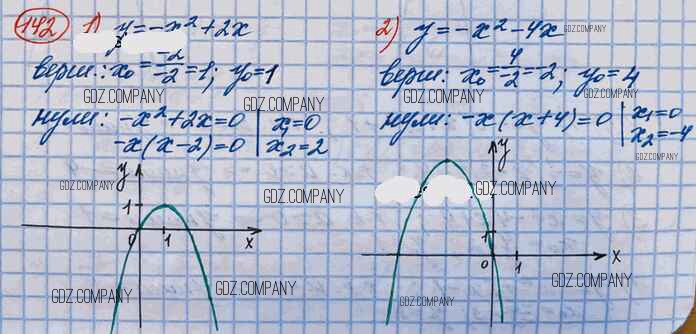 142 1) y = -x² + 2x
верш.: x₀ = -2/-2 = 1; y₀ = 1
нули: -x² + 2x = 0 | x₁ = 0
-x(x - 2) = 0 | x₂ = 2
y
1
0 1 x
2) y = -x² - 4x
верш: x₀ = 4/-2 = -2; y₀ = 4
нули: -x(x + 4) = 0 | x₁ = 0
x₂ = -4
y
1
0 1 x
GDZ.COMPANY
GDZ.COMPANY
GDZ.COMPANY
GDZ.COMPANY
GDZ.COMPANY
GDZ.COMPANY
GDZ.COMPANY
GDZ.COMPANY
GDZ.COMPANY
GDZ.COMPANY
GDZ.COMPANY
GDZ.COMPANY
GDZ.COMPANY
GDZ.COMPANY